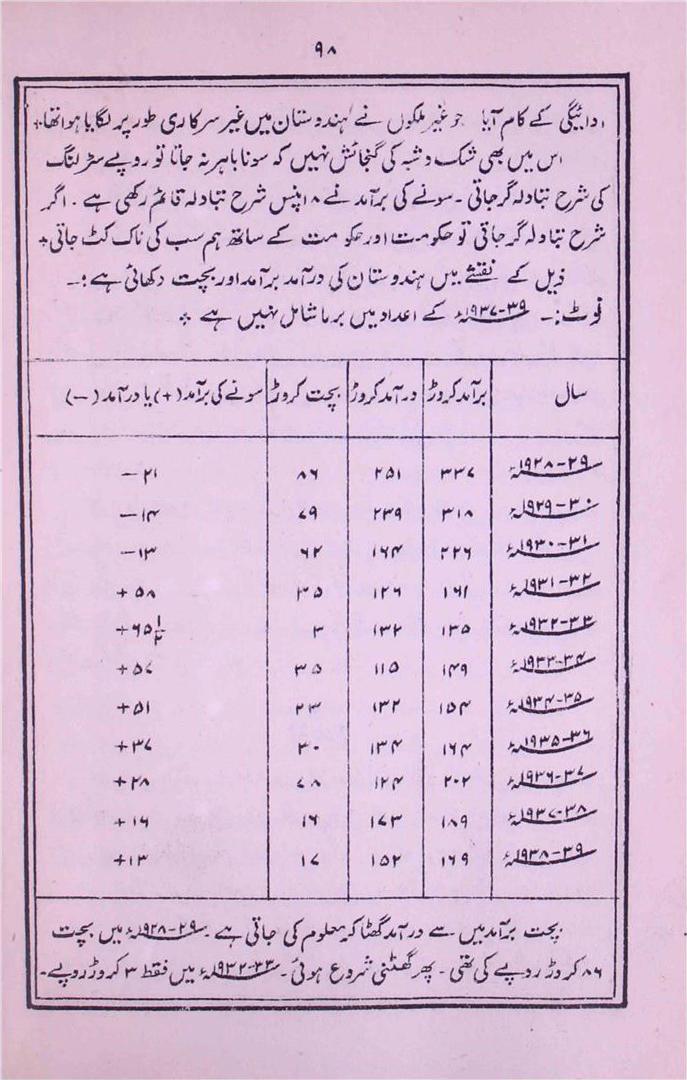 ۹۸
ادائیگی کے کام آیا جو غیر ملکوں نے ہندوستان میں غیر سرکاری طور پر لگایا ہوا تھا ؞
اس میں بھی شک و شبہ کی گنجائش نہیں کہ سونا باہر نہ جاتا تو روپے سٹرلنگ
کی شرح تبادلہ گر جاتی ۔ سونے کی برآمد نے ۱۸ پنس شرح تبادلہ قائم رکھی ہے ۔ اگر
شرح تبادلہ گر جاتی تو حکومت اور حکومت کے ساتھ ہم سب کی ناک کٹ جاتی ؞
ذیل کے نقشے میں ہندوستان کی درآمد برآمد اور بچت دکھائی ہے :۔
نوٹ :۔ ۳۹-۱۹۳۷ء کے اعداد میں برما شامل نہیں ہے ؞
سال برآمد کروڑ درآمد کروڑ بچت کروڑ سونے کی برآمد (+) یا درآمد (–)
۲۹-۱۹۲۸ء ۳۳۷ ۲۵۱ ۸۶ –۲۱
۳۰-۱۹۲۹ء ۳۱۸ ۲۳۹ ۷۹ –۱۴
۳۱-۱۹۳۰ء ۲۲۶ ۱۶۴ ۶۲ –۱۳
۳۲-۱۹۳۱ء ۱۶۱ ۱۲۶ ۳۵ +۵۸
۳۳-۱۹۳۲ء ۱۳۵ ۱۳۲ ۳ +۶۵ ۱/۲
۳۴-۱۹۳۳ء ۱۴۹ ۱۱۵ ۳۵ +۵۷
۳۵-۱۹۳۴ء ۱۵۴ ۱۳۲ ۲۳ +۵۱
۳۶-۱۹۳۵ء ۱۶۴ ۱۳۴ ۳۰ +۳۷
۳۷-۱۹۳۶ء ۲۰۲ ۱۲۴ ۷۸ +۲۸
۳۸-۱۹۳۷ء ۱۸۹ ۱۷۳ ۱۶ +۱۶
۳۹-۱۹۳۸ء ۱۶۹ ۱۵۲ ۱۷ +۱۳
بچت برآمد میں سے درآمد گھٹا کر معلوم کی جاتی ہے ۔ ۲۹-۱۹۲۸ء میں بچت
۸۶ کروڑ روپے کی تھی ۔ پھر گھٹنی شروع ہوئی ۔ ۳۳-۱۹۳۲ء میں فقط ۳ کروڑ روپے ۔